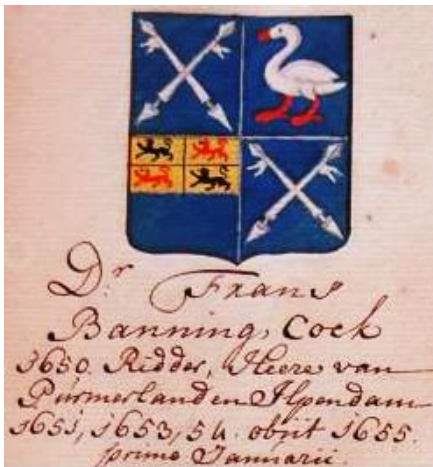 Dr Frans
Banning, Cock
1650. Ridder, Heere van
Purmerland en Ilpendam
1651, 1653, 54. obiit 1655.
primo Januarii.